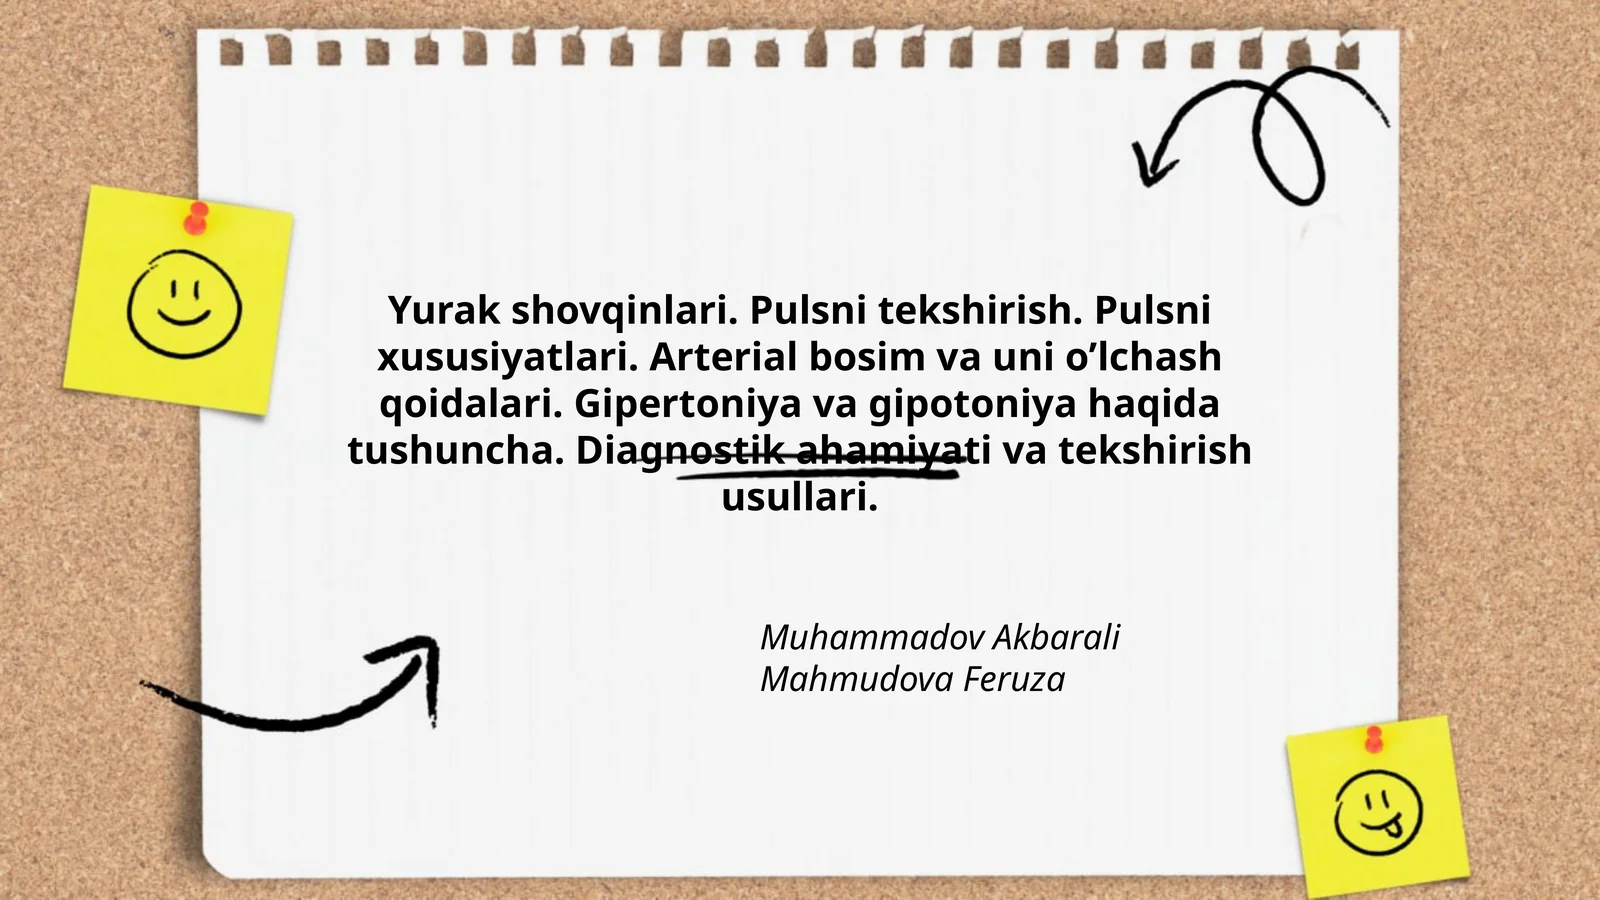 Yurak shovqinlari. Pulsni tekshirish. Pulsni
xususiyatlari. Arterial bosim va uni o’lchash
qoidalari. Gipertoniya va gipotoniya haqida
tushuncha. Diagnostik ahamiyati va tekshirish
usullari.
Muhammadov Akbarali
Mahmudova Feruza